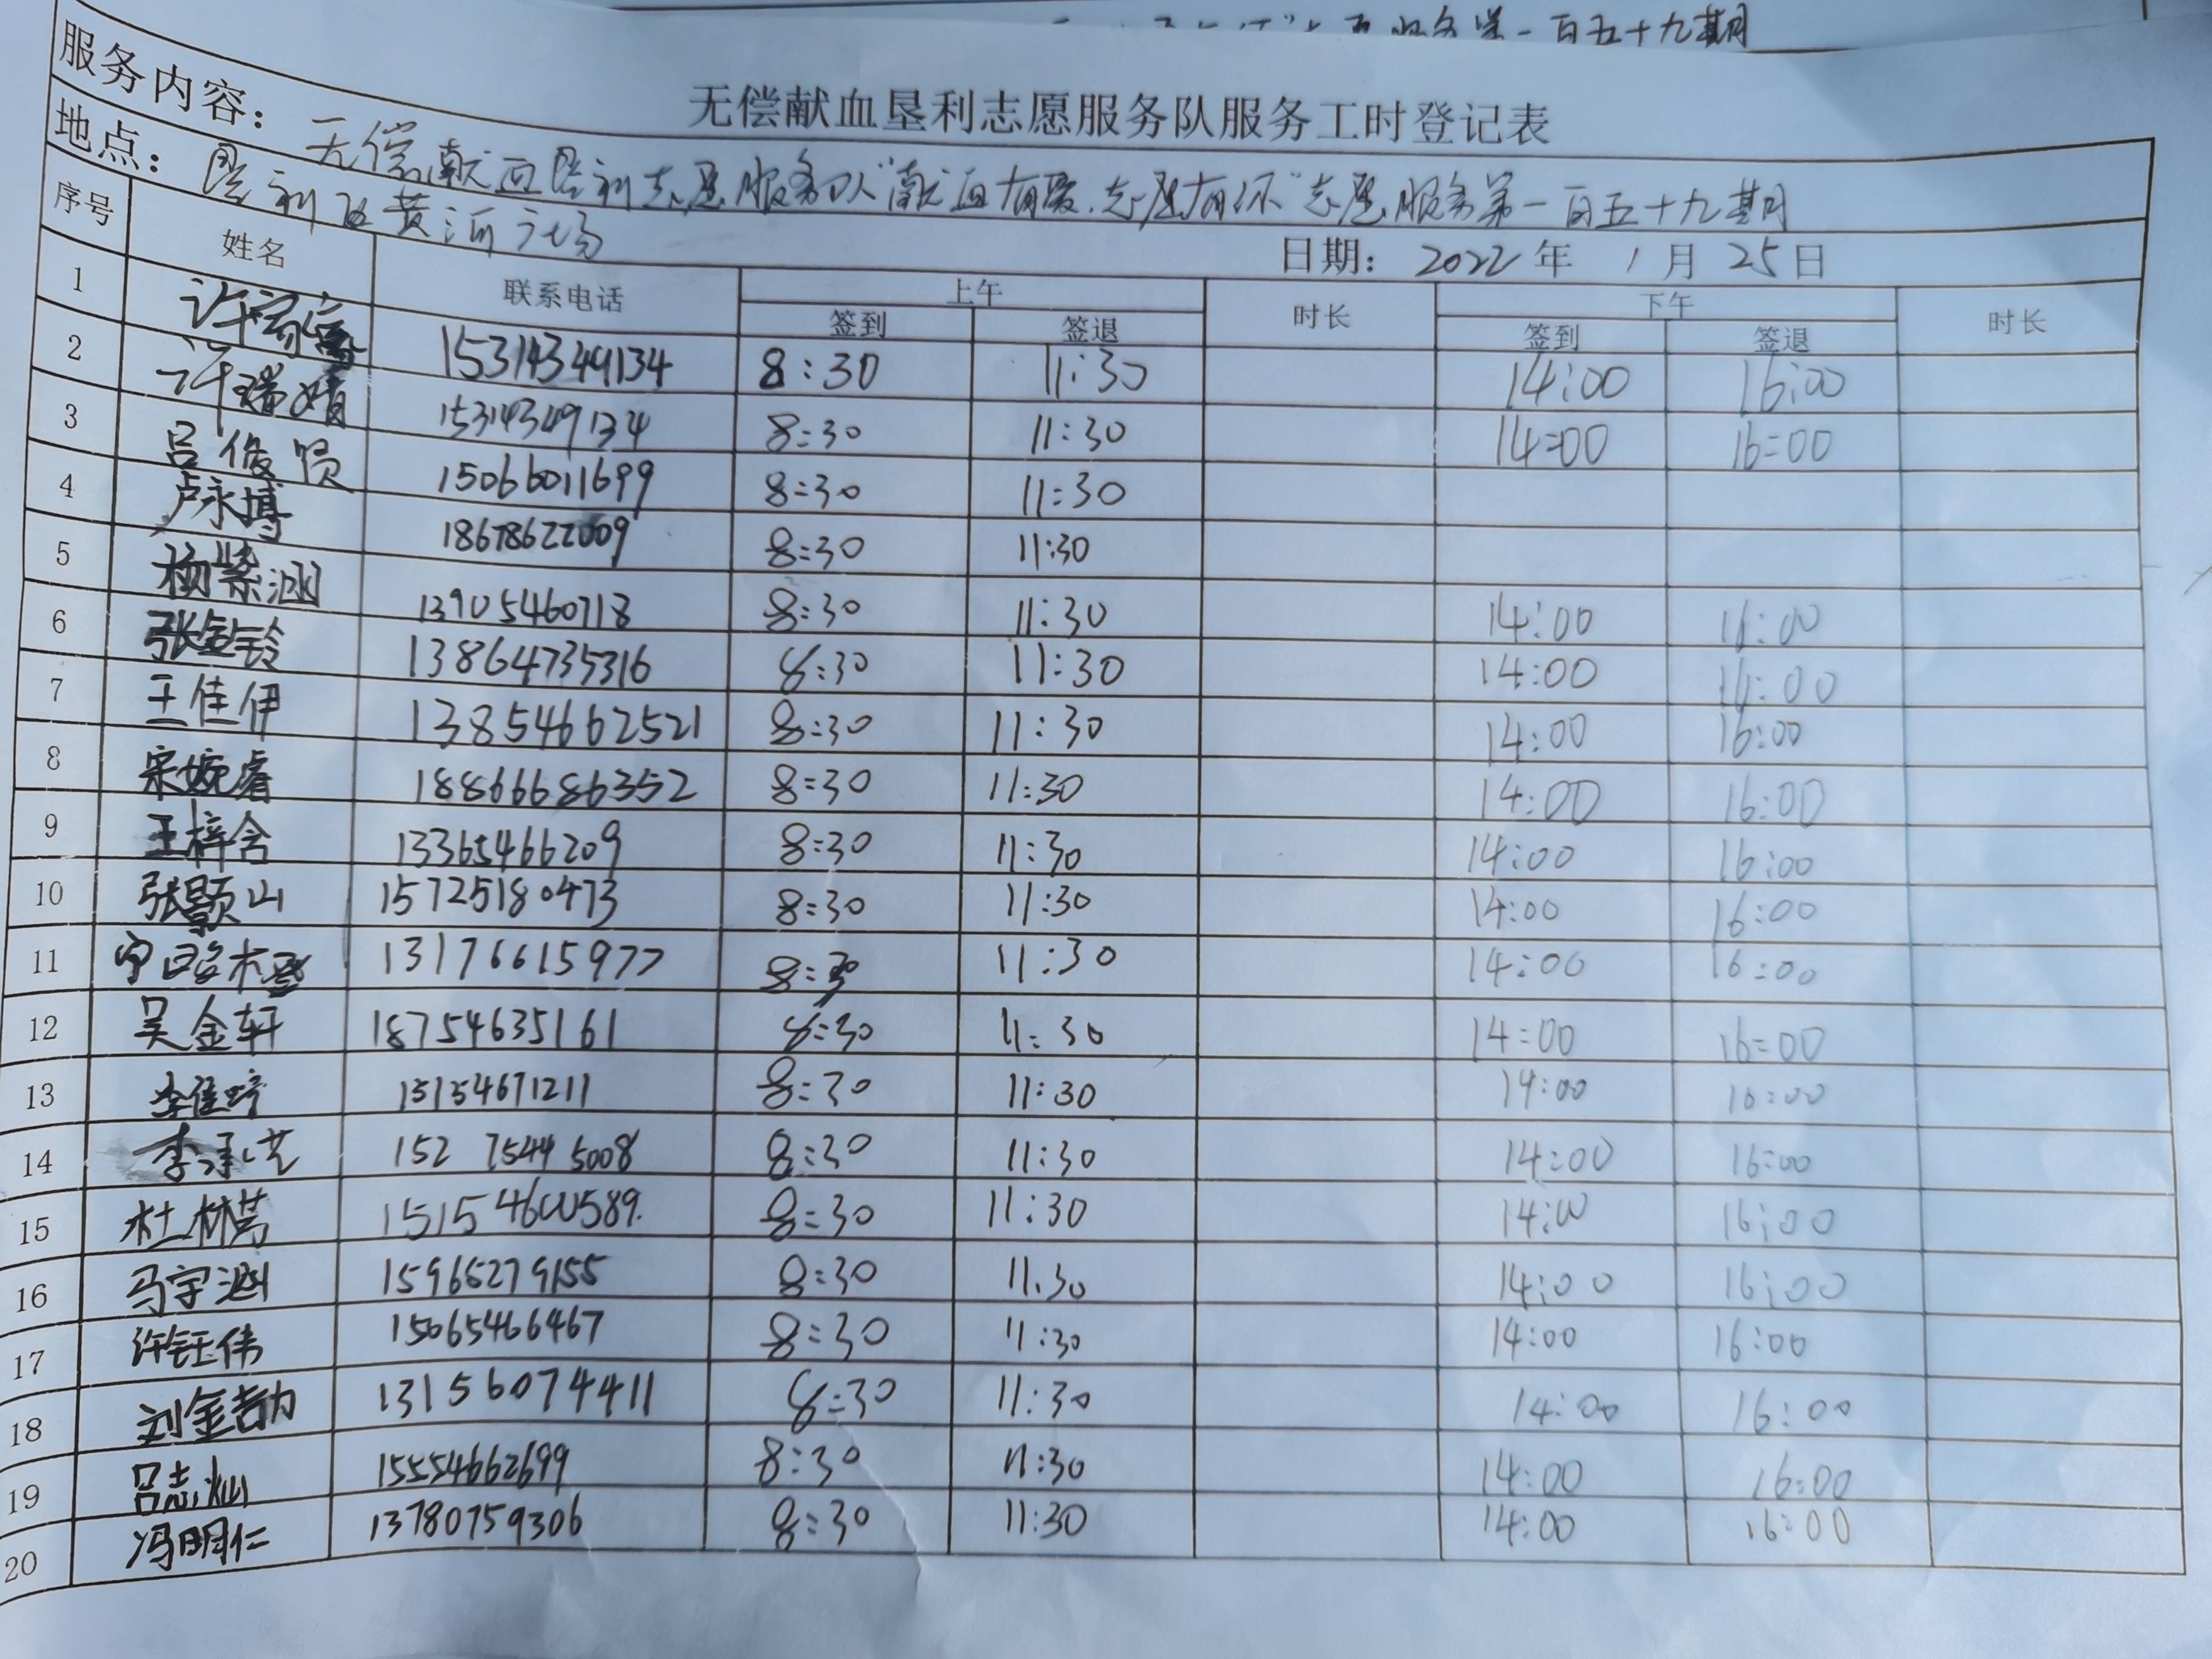 一百五十九期
无偿献血垦利志愿服务队服务工时登记表
服务内容： 无偿献血垦利志愿服务队"献血有爱.志愿有你"志愿服务第一百五十九期
地点： 垦利区黄河广场 日期： 2022年 1月 25日
序号 姓名 联系电话 上午 时长 下午 时长
签到 签退 签到 签退
1 15314349134 8:30 11:30 14:00 16:00
2 许瑞婧 15314349134 8:30 11:30 14:00 16:00
3 吕俊贤 15066011699 8:30 11:30
4 卢永博 18678622009 8:30 11:30
5 杨紫涵 13905460718 8:30 11:30 14:00 16:00
6 张金铃 13864735316 8:30 11:30 14:00 16:00
7 王佳伊 13854662521 8:30 11:30 14:00 16:00
8 宋婉睿 18866686352 8:30 11:30 14:00 16:00
9 王梓含 13365466209 8:30 11:30 14:00 16:00
10 张颢山 15725180473 8:30 11:30 14:00 16:00
11 13176615977 8:30 11:30 14:00 16:00
12 吴金轩 18754635161 8:30 11:30 14:00 16:00
13 李佳婷 15154671211 8:30 11:30 14:00 16:00
14 李承芸 152 7544 5008 8:30 11:30 14:00 16:00
15 杜林芮 15154600589. 8:30 11:30 14:00 16:00
16 马宇涵 15965279155 8:30 11.30 14:00 16:00
17 许钰伟 15065466467 8:30 11:30 14:00 16:00
18 刘金喆 13156074411 8:30 11:30 14:00 16:00
19 吕志灿 15554662699 8:30 11:30 14:00 16:00
20 冯明仁 13780759306 8:30 11:30 14:00 16:00